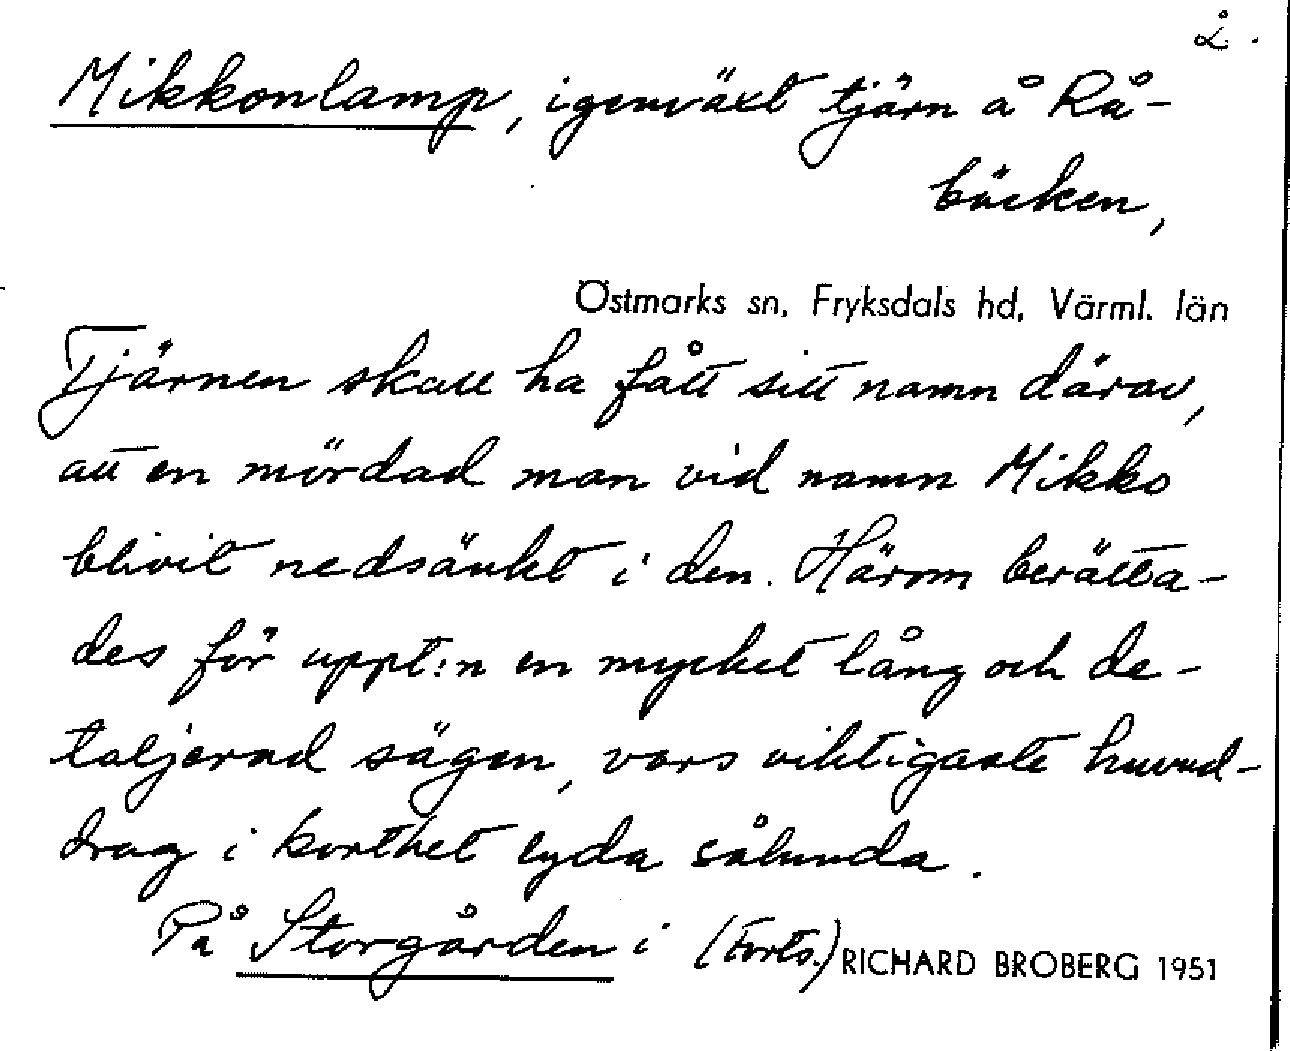 2.
Mikkonlamp, igenväxt tjärn å Rå-
bäcken,
Östmarks sn, Fryksdals hd, Värml. län
Tjärnen skall ha fått sitt namn därav,
att en mördad man vid namn Mikko
blivit nedsänkt i den. Härom berätta-
des för uppt:n en mycket lång och de-
taljerad sägen, vars viktigaste huvud-
drag i korthet lyda sålunda.
På Storgården i (Forts.) RICHARD BROBERG 1951